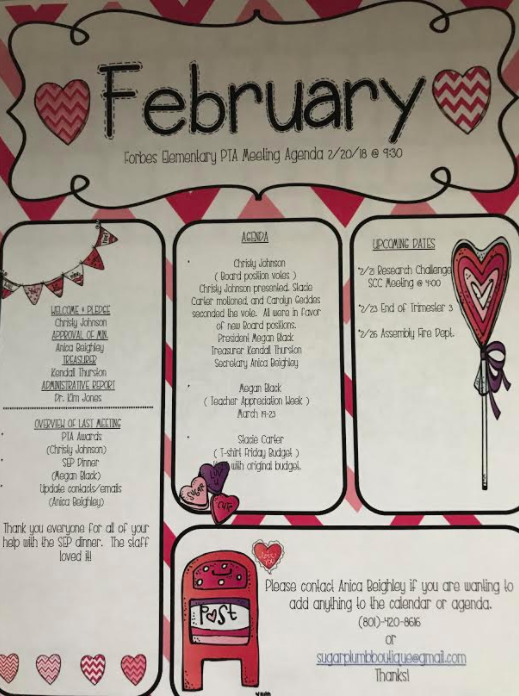 February
Forbes Elementary PTA Meeting Agenda 2/20/18 @ 9:30
WELCOME & PLEDGE
Christy Johnson
APPROVAL OF MIN.
Anica Beighley
TREASURER
Kendall Thurston
ADMINISTRATIVE REPORT
Dr. Kim Jones
OVERVIEW OF LAST MEETING
PTA Awards
(Christy Johnson)
SEP Dinner
(Megan Black)
Update contacts/emails
(Anica Beighley)
Thank you everyone for all of your
help with the SEP dinner. The staff
loved it!
AGENDA
Christy Johnson
( Board position votes )
Christy Johnson presented. Slade
Carter motioned, and Carolyn Geddes
seconded the vote. All were in favor
of new Board positions.
President Megan Black
Treasurer Kendall Thurston
Secretary Anica Beighley
Megan Black
( Teacher Appreciation Week )
March 19-23
Slade Carter
( T-shirt Friday Budget )
with original budget.
UPCOMING DATES
*2/21 Research Challenge
SCC Meeting @ 4:00
*2/23 End of Trimester 3
*2/26 Assembly Fire Dept.
Post
Please contact Anica Beighley if you are wanting to
add anything to the calendar or agenda.
(801)-420-8616
or
sugarplumbboutique@gmail.com
Thanks!